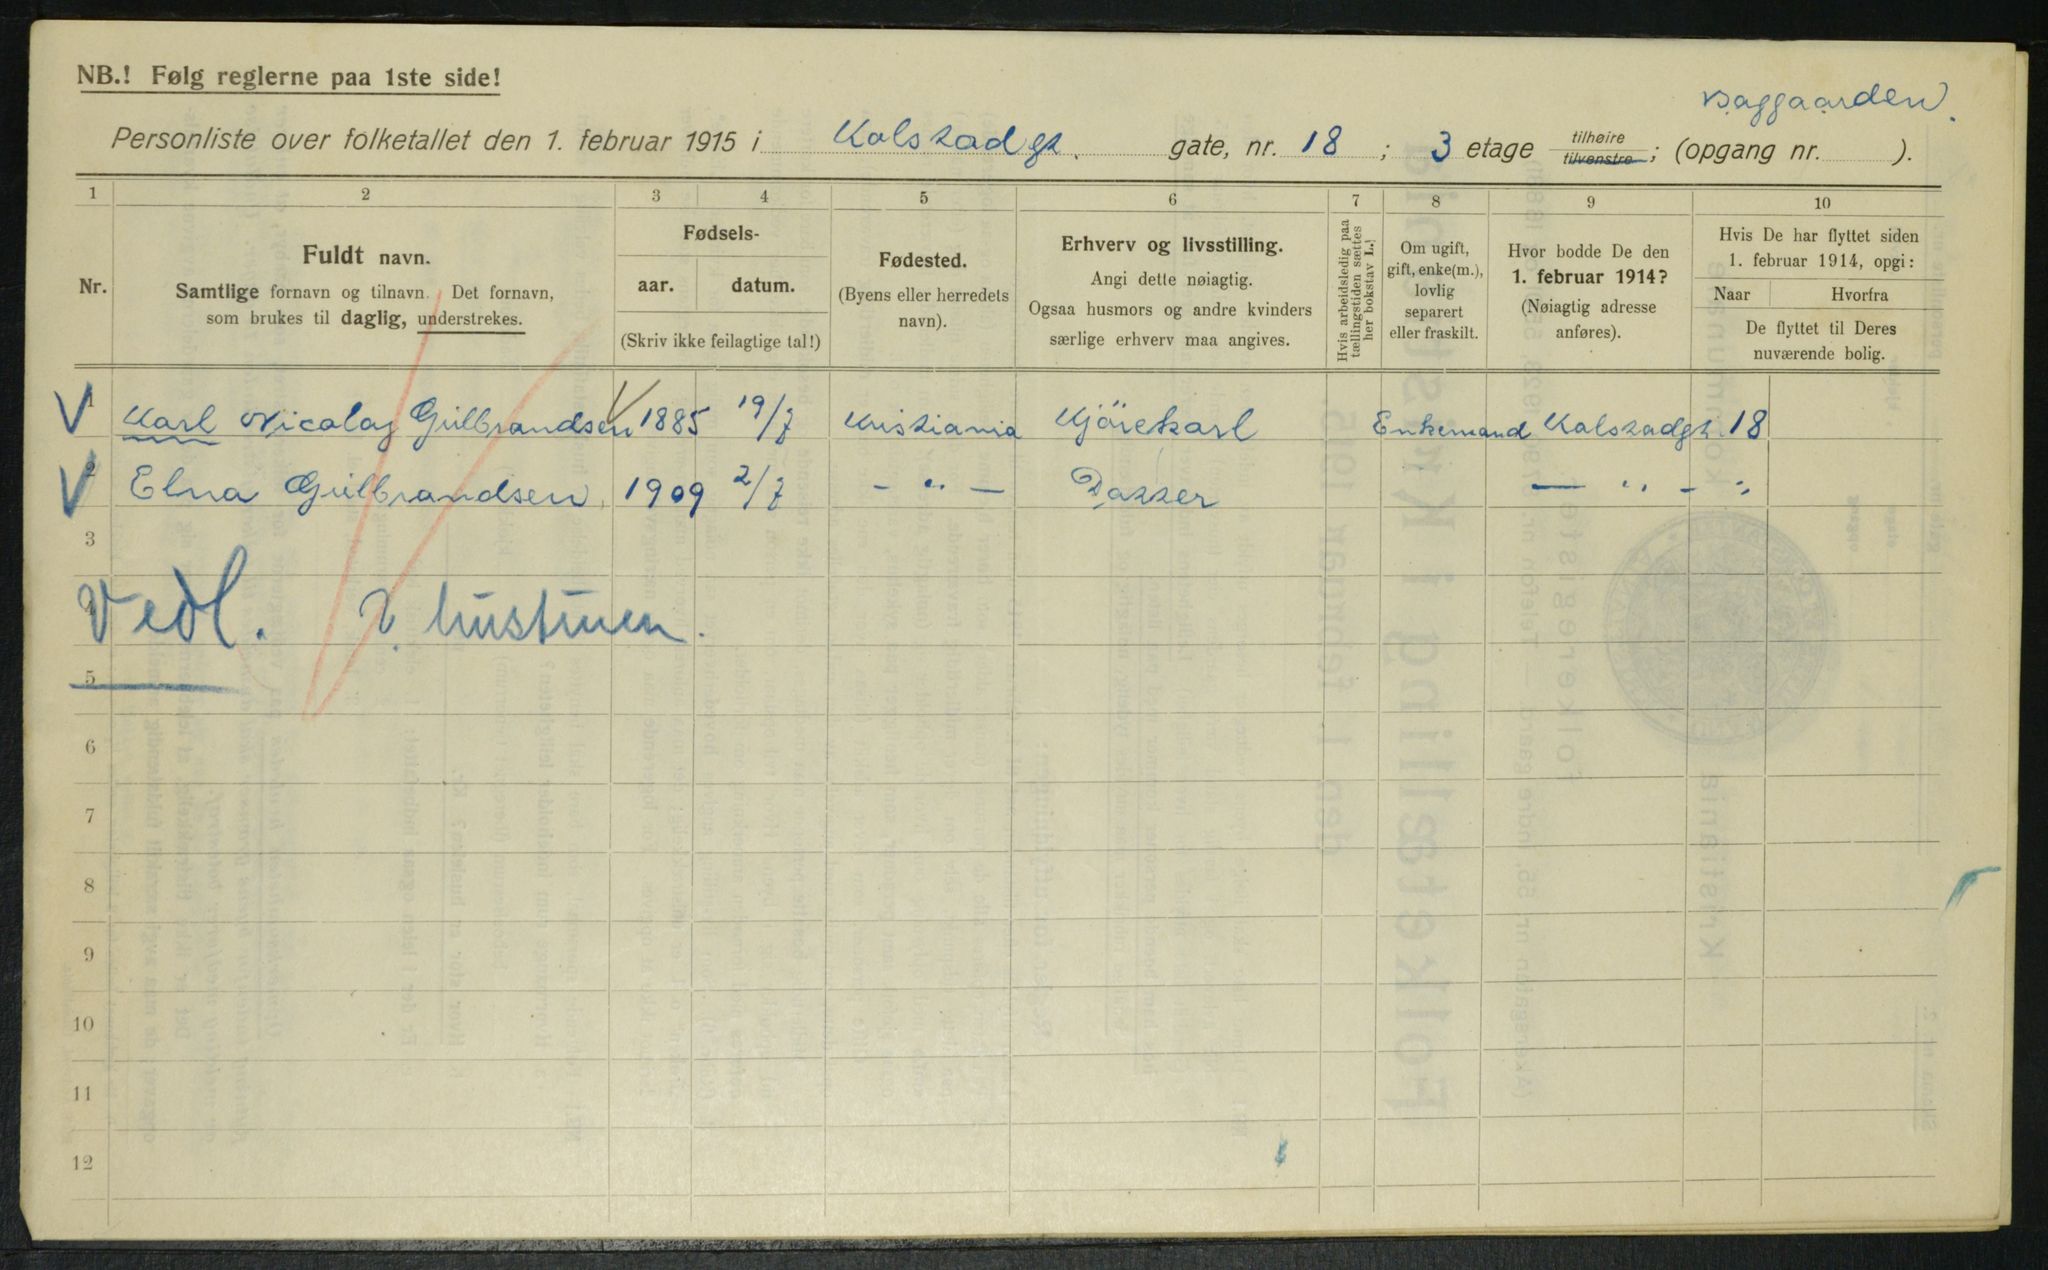 NB.! Følg reglerne paa 1ste side!
Baggaarden.
Personliste over folketallet den 1. februar 1915 i Kolstadgt. gate, nr. 18 ; 3 etage tilhøire tilvenstre ; (opgang nr. ).
1 2 3 4 5 6 7 8 9 10
Nr.
Fuldt navn.
Samtlige fornavn og tilnavn. Det fornavn,
som brukes til daglig, understrekes.
Fødsels-
aar. datum.
(Skriv ikke feilagtige tal!)
Fødested.
(Byens eller herredets
navn).
Erhverv og livsstilling.
Angi dette nøiagtig.
Ogsaa husmors og andre kvinders
særlige erhverv maa angives.
Hvis arbeidsledig paa
tællingstiden sættes
her bokstav L.!
Om ugift,
gift, enke(m.),
lovlig
separert
eller fraskilt.
Hvor bodde De den
1. februar 1914?
(Nøiagtig adresse
anføres).
Hvis De har flyttet siden
1. februar 1914, opgi:
Naar Hvorfra
De flyttet til Deres
nuværende bolig.
1 Karl Nicolay Gulbrandsen 1885 19/7 Kristiania Kjörekarl Enkemand Kolstadgt. 18
2 Elna Gulbrandsen, 1909 2/7 – " – Datter — " - "
3
4 Vedl. hustruen.
5
6
7
8
9
10
11
12